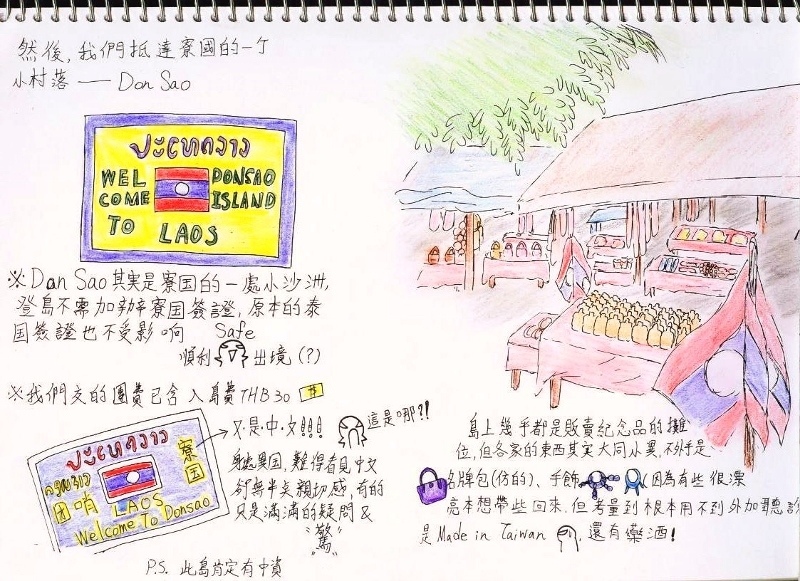 然後,我們抵達寮國的一个
小村落 —— Don Sao
ປະເທດລາວ
WEL COME TO
DONSAO ISLAND
LAOS
※Don Sao其实是寮国的一處小沙洲,
登島不需加辦寮国簽證,原本的泰
国簽證也不受影响 Safe
順利 出境(?)
※我們交的團費已含入島費THB30
ປະເທດລາວ
寮国
LAOS
Welcome To Donsao
又·是·中·文!!!
這是哪?!
身處異国,難得看見中文
卻無半点親切感,有的
只是滿滿的疑問&
"驚"
P.S. 此島肯定有中資
島上幾乎都是販賣紀念品的攤
位,但各家的東西其实大同小異,不外乎是
名牌包(仿的)、手飾 因為有些很漂
亮本想帶些回來,但考量到根本用不到外加聽說
是Made in Taiwan ,還有藥酒!